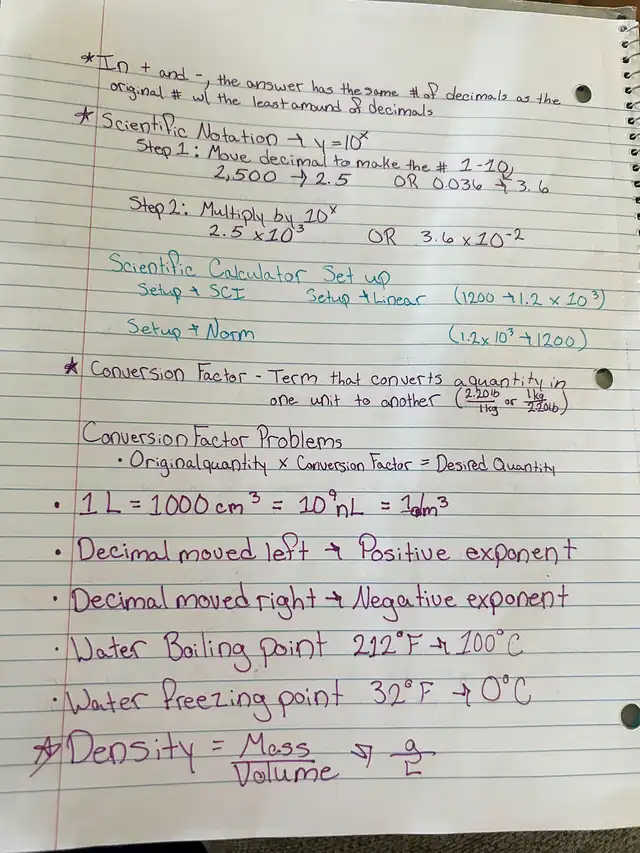 *In + and -, the answer has the same # of decimals as the
original # w/ the least amound of decimals
* Scientific Notation → y=10ˣ
Step 1: Move decimal to make the # 1-10,
2,500 → 2.5 OR 0.036 → 3.6
Step 2: Multiply by 10ˣ
2.5 x 10³ OR 3.6 x 10⁻²
Scientific Calculator Set up
Setup → SCI Setup → Linear (1200 → 1.2 x 10³)
Setup → Norm (1.2 x 10³ → 1200)
* Conversion Factor - Term that converts a quantity in
one unit to another (2.20lb/1kg or 1kg/2.20lb)
Conversion Factor Problems
• Original quantity x Conversion Factor = Desired Quantity
• 1 L = 1000 cm³ = 10⁹ nL = 1dm³
• Decimal moved left → Positive exponent
• Decimal moved right → Negative exponent
• Water Boiling point 212°F → 100°C
• Water freezing point 32°F → 0°C
* Density = Mass/Volume → g/L